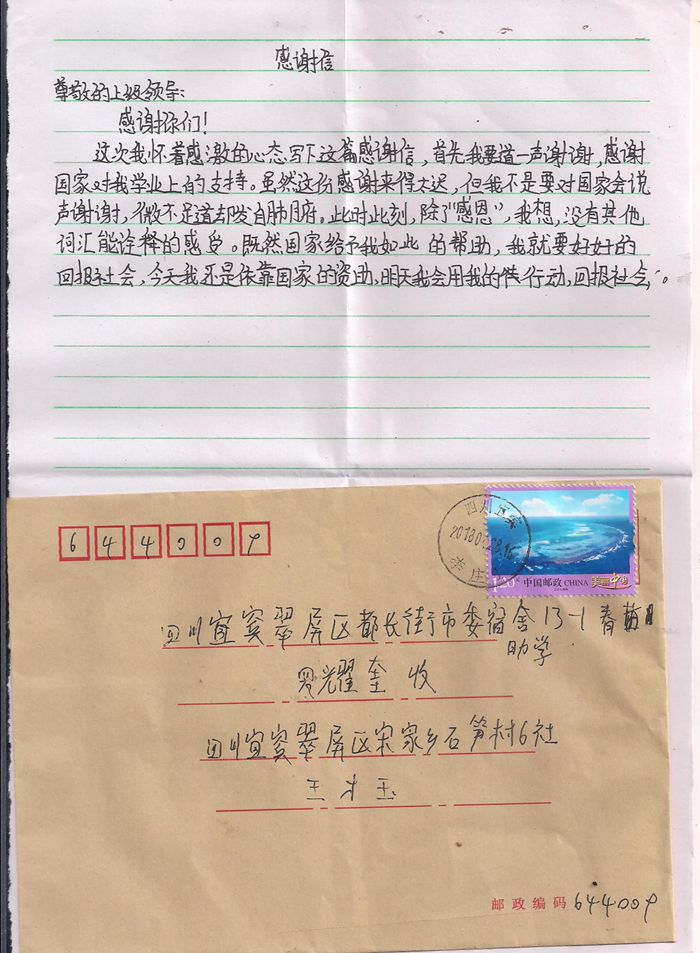 感谢信
尊敬的上级领导:
感谢你们!
这次我怀着感激的心态写下这篇感谢信,首先我要道一声谢谢,感谢
国家对我学业上的支持。虽然这份感谢来得太迟,但我不是要对国家会说
声谢谢,微不足道却发自肺腑。此时此刻,除了“感恩”,我想,没有其他
词汇能诠释的感受。既然国家给予我如此的帮助,我就要好好的
回报社会,今天我还是依靠国家的资助、明天我会用我的行动,回报社会。
644009
四川宜宾
1.20元 中国邮政 CHINA 美丽中国
四川宜宾翠屏区都长街市委宿舍13-1春苗
助学
罗耀奎 收
四川宜宾翠屏区宋家乡石笋村6社
王才玉
邮政编码 644009